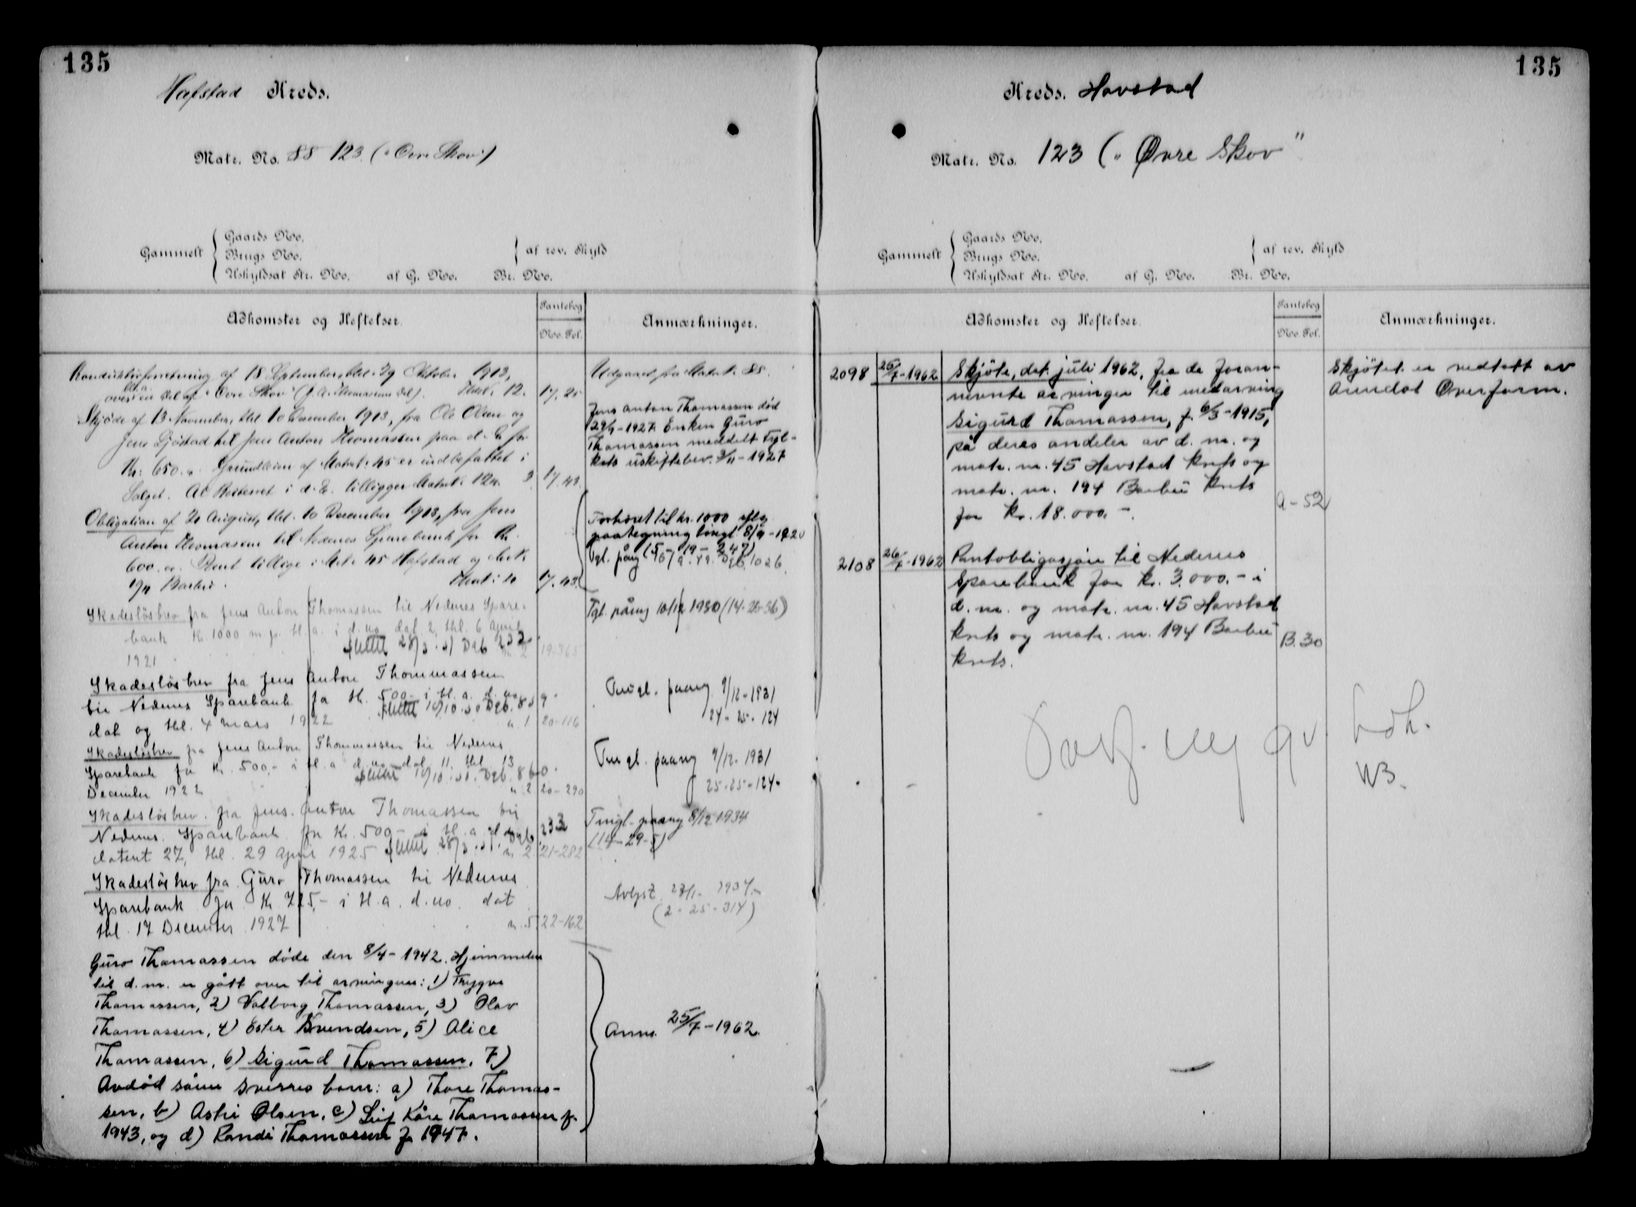 135
Hafstad Kreds.
Matr. No. 88 123 ("Øvre Skov")
Gammelt
Gaards No.
Brugs No.
Uskyldsat Nr. No. af G. No. Br. No.
af rev. Skyld
Adkomster og Heftelser.
Pantebog
No. Fol.
Anmærkninger.
af 18 September, thl. 29 Oktober 1913,
over en del af "Øvre Skov" (J. A. Thomassens Del). 12. 17. 25
Skjøde af 13 November, thl. 10 December 1913, fra Ole Olsen og
Jens til Jens Anton Thomassen paa d. E. for
Kr. 650. Grundleien af Matr. 45 er indbefattet i
Salget. i d. E. tillægges Matr. 124. 17. 43
Obligation af 20 August, thl. 10 December 1913, fra Jens
Anton Thomassen til Nedenes Sparebank for Kr.
600. tillige i Matr. 45 Hafstad og Matr.
194 Barbu. 17. 43
Skadesløsbrev fra Jens Anton Thomassen til Nedenes Spare-
bank Kr. 1000 m. p. H. a. i d. no. dat 2, thl. 6 April
1921 Slettet 28/3 31 Dgb 232 19-365
Skadesløsbrev fra Jens Anton Thommassen
til Nedenes Sparebank for Kr. 500,- i H. a. d. no
dat og thl. 4 Mars 1922 Slettet 10/10 30 Dgb. 859 20-116
Skadesløsbrev fra Jens Anton Thommassen til Nedenes
Sparebank for Kr. 500,- i H. a. d. no. dat. 11, thl. 13
December 1922 Slettet 10/10 30. Dgb. 860 20-290
Skadesløsbrev fra Jens Anton Thomassen til
Nedenes Sparebank for Kr. 500,- i H. a. d. no
datert 27, thl. 29 April 1925 Slettet 28/3 31. Dgb 233 21-282
Skadesløsbrev fra Guro Thomassen til Nedenes
Sparebank for Kr. 725,- i H. a. d. no. dat
thl. 17 December 1927 22-162
Guro Thomassen døde den 8/4-1942. Hjemmelen
til d. m. er gått over til arvingene: 1) Trygve
Thomassen, 2) Valborg Thomassen, 3) Olav
Thomassen, 4) Ester Svendsen, 5) Alice
Thomassen, 6) Sigurd Thomassen, 7)
Avdød sønn Sverres barn: a) Thore Thomas-
sen, b) Astri Olsen, c) Leif Kåre Thomassen f.
1943, og d) Randi Thomassen f. 1947.
Udgaaet fra Matr. 88.
Jens Anton Thomassen død
29/4-1927. Enken Guro
Thomassen meddelt Tgl-
kets uskiftebev. 3/11-1927
Forhøiet til kr. 1000 eftr.
paategning tingl. 8/9-1920
Tgl. påny 10/12 1930 (14-26-36)
Tingl. paany 9/12-1931
24-25-124
Tingl. paany 9/12-1931
25-25-124
Tingl. paany 8/12 1934
(14-29-5)
Avlyst 28/1-1937.
(2-25-314)
Anm. 25/7-1962.
135
Kreds. Havstad
Matr. No. 123 ("Øvre Skov"
Gammelt
Gaards No.
Brugs No.
Uskyldsat Nr. No. af G. No. Br. No.
af rev. Skyld
Adkomster og Heftelser.
Pantebog
No. Fol.
Anmærkninger.
2098 25/7-1962 Skjøte, dat. juli 1962, fra de foran-
nevnte arvinger til medarving
Sigurd Thomassen, f. 6/3-1915,
på deres andeler av d. m. og
matr. nr. 45 Havstad krets og
matr. nr. 194 Barbu krets
for kr. 18.000.-. A-52
Skjøtet er vedtatt av
Arendal Overform.
2108 26/7-1962 Pantobligasjon til Nedenes
Sparebank for kr. 3.000.- i
d. m. og matr. nr. 45 Havstad
krets og matr. nr. 194 Barbu
krets. B. 30